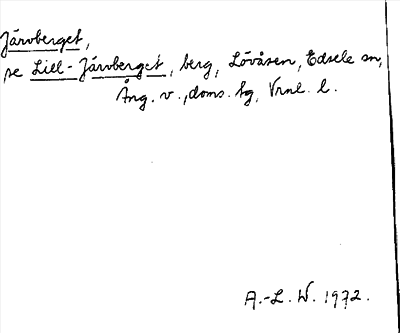 Järvberget,
se Lill-Järvberget, berg, Lövåsen, Edsele sn,
Ång. v., doms. tg, Vrnl. l.
A.-L. W. 1972.